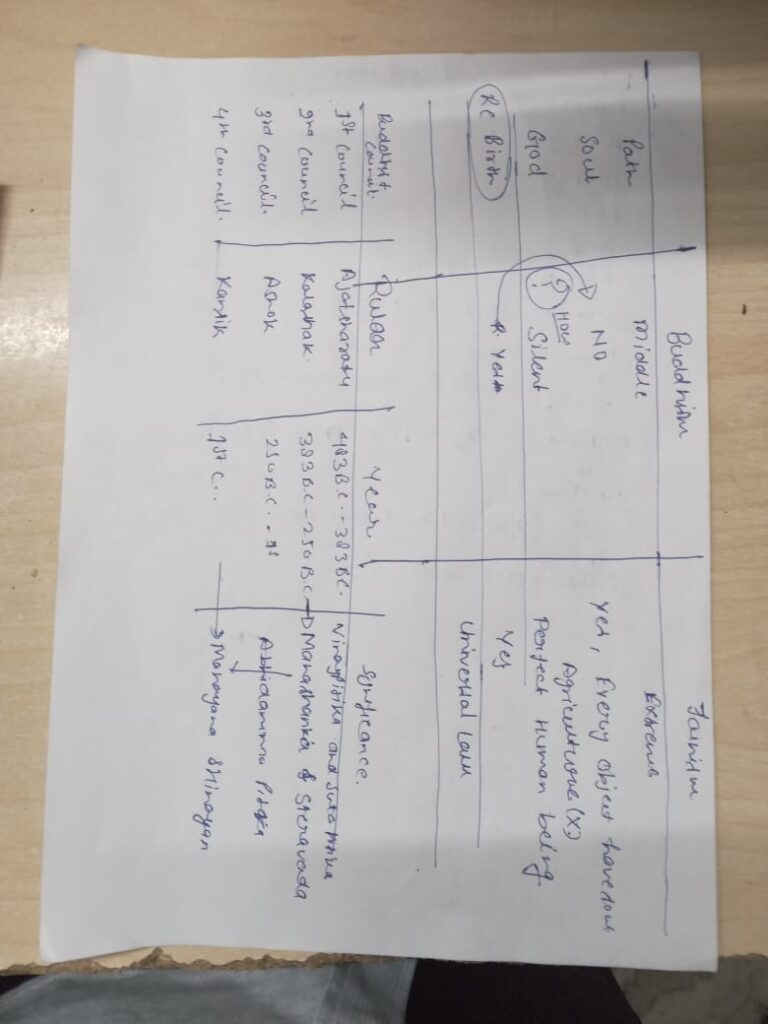 Buddhism Jainism
Path Middle Extreme
Soul NO Yes, Every object have soul
Agriculture (X)
God ? How Silent Perfect Human being
Re Birth Yes Yes
Universal Law
Buddhist Council Ruler Year Significance.
1st Council Ajatshatru 483 B.C. - 383 BC. Vinaypitika and Suta Pitika
2nd Council Kalashak 383 B.C - 250 B.C. → Mahashanka & Steravada
3rd Council. Ashok 250 B.C. - Abhidamma Pitika
4th Council. Kanshk 1st C.. → Mahayana & Hinayan